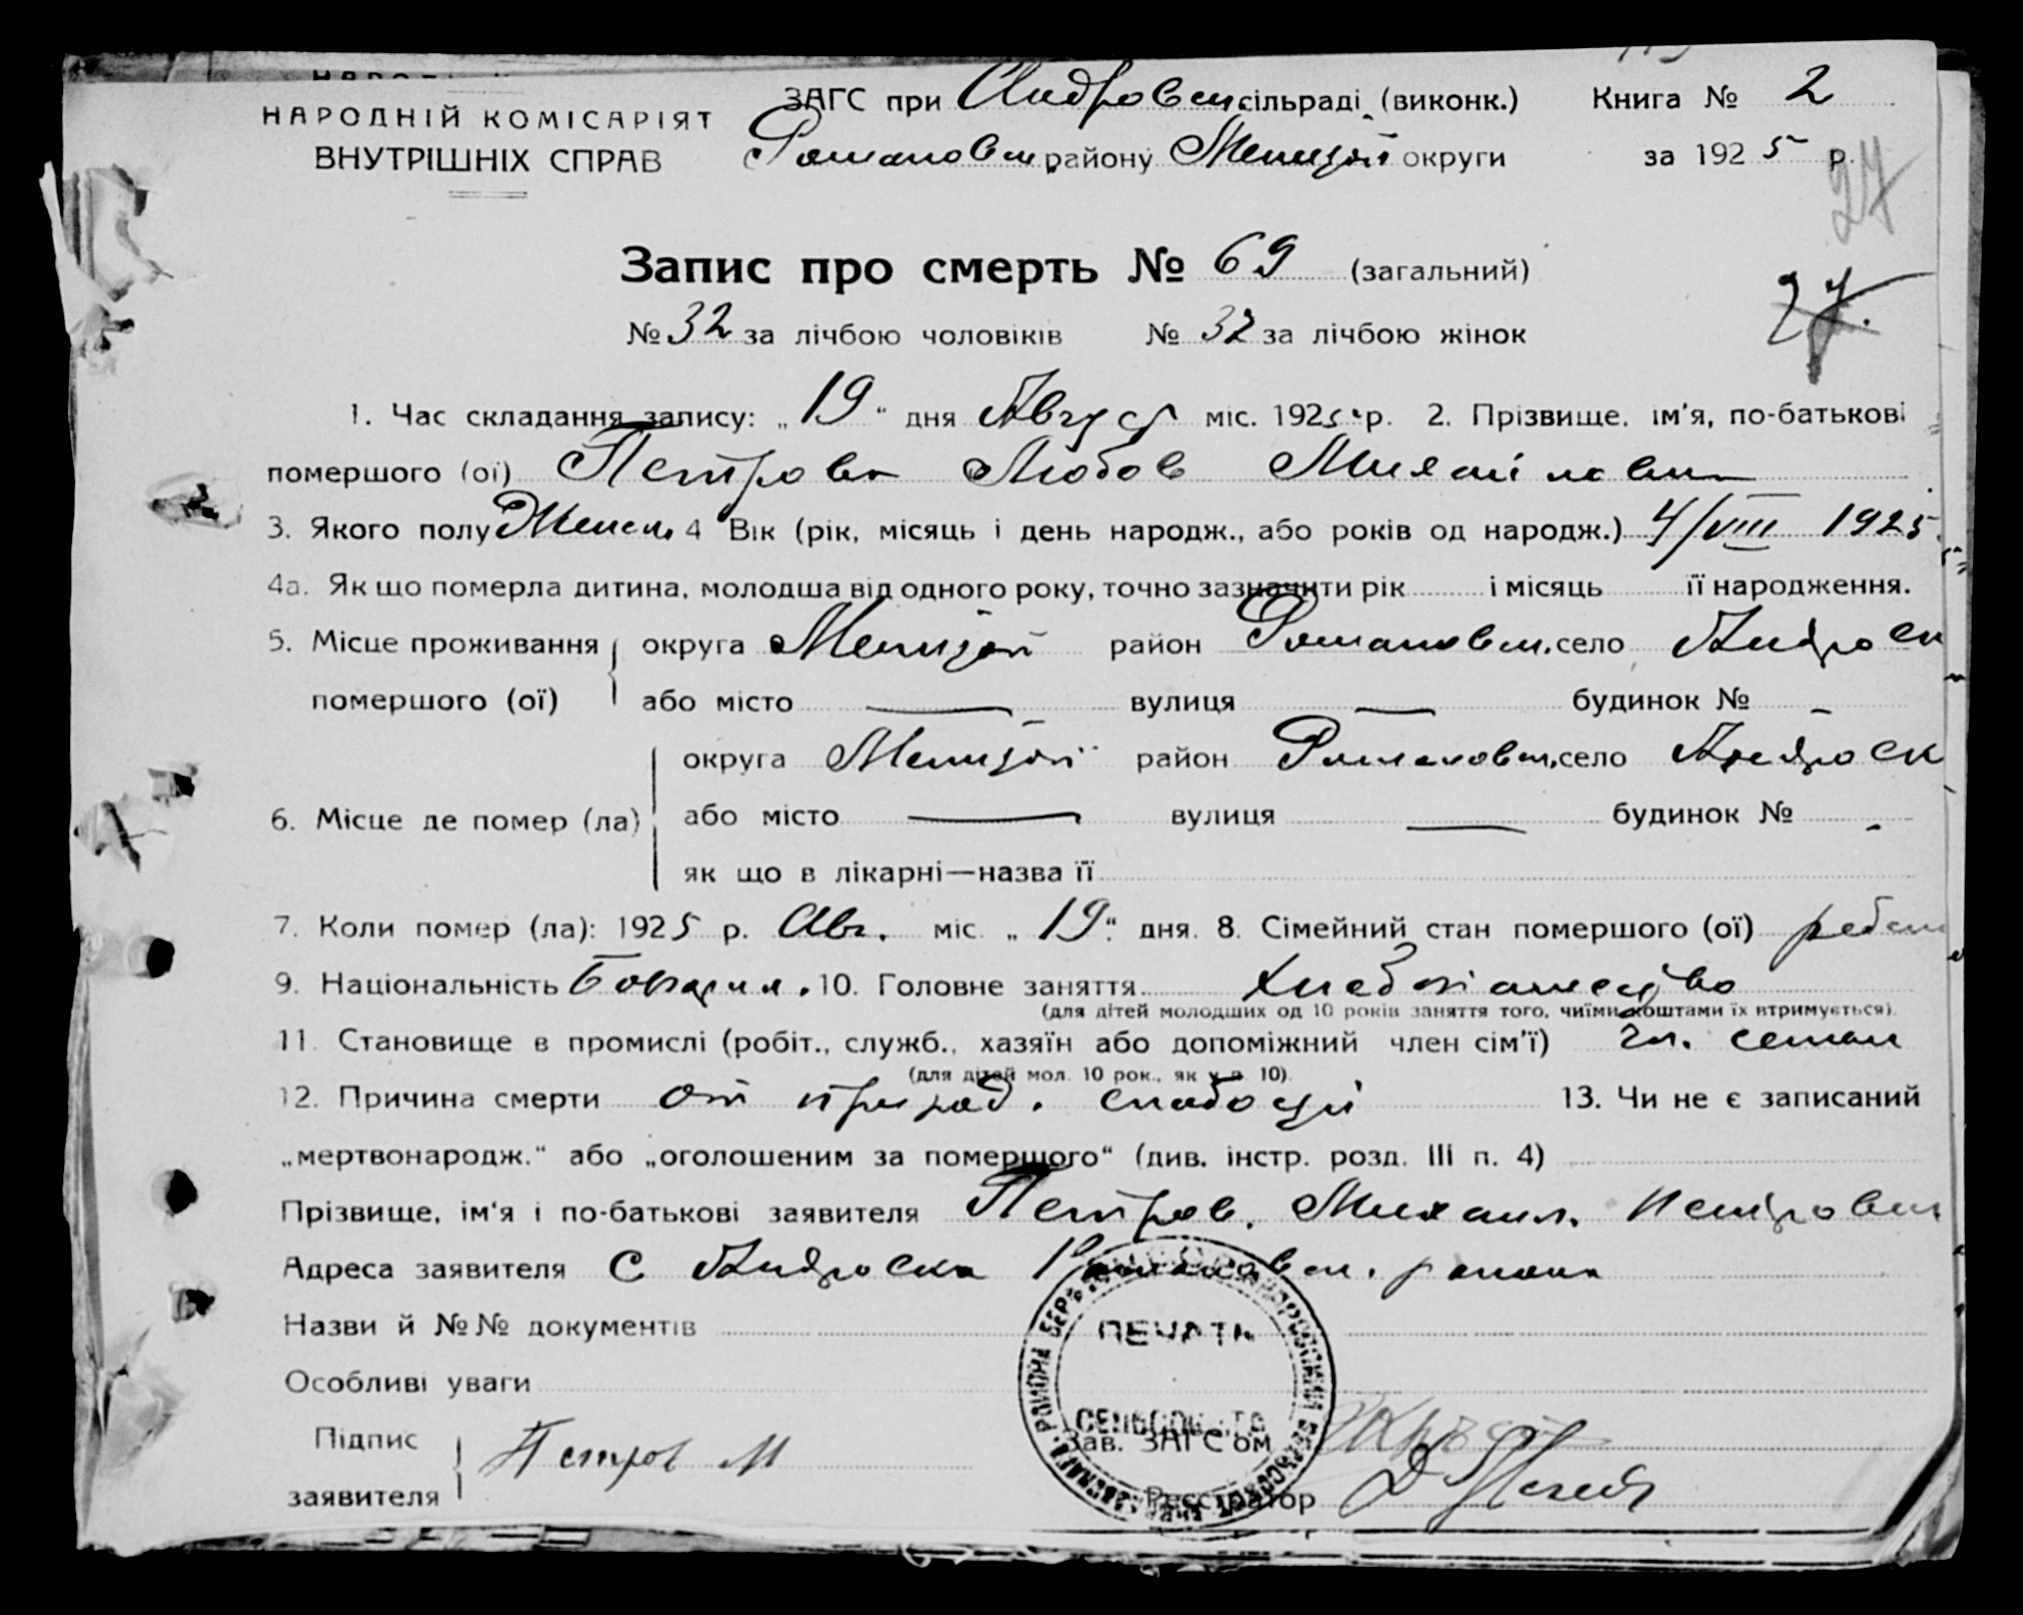 НАРОДНІЙ КОМІСАРІЯТ
ВНУТРІШНІХ СПРАВ
ЗАГС при Андровск. сільраді (виконк.) Книга № 2
Романовск. району Мелитоп округи за 1925 р.
27
27.
Запис про смерть № 69 (загальний)
№ 32 за лічбою чоловіків № 37 за лічбою жінок
1. Час складання запису: „19“ дня Август міс. 1925 р. 2. Прізвище, ім'я, по-батькові
помершого (ої) Петрова Любов Михайловна
3. Якого полу Женск. 4 Вік (рік, місяць і день народж., або років од народж.) 4/VIII 1925
4а. Як що померла дитина, молодша від одного року, точно зазначити рік і місяць її народження.
5. Місце проживання помершого (ої) округа Мелитоп район Романовск. село Андровк
або місто — вулиця — будинок № –
6. Місце де помер (ла) округа Мелитоп район Романовск. село Андровк
або місто — вулиця — будинок № -
як що в лікарні—назва її
7. Коли помер (ла): 1925 р. Авг. міс. „19“ дня. 8. Сімейний стан помершого (ої) ребен
9. Національність Болгарин. 10. Головне заняття Хлебопашество
(для дітей молодших од 10 років заняття того, чиїми коштами їх втримується).
11. Становище в промислі (робіт., служб., хазяїн або допоміжний член сім'ї) чл. семьи
(для дітей мол. 10 рок., як у п. 10).
12. Причина смерти от природ. слабости 13. Чи не є записаний
„мертвонародж.“ або „оголошеним за помершого“ (див. інстр. розд. III п. 4)
Прізвище, ім'я і по-батькові заявителя Петров. Михаил. Петрович
Адреса заявителя С Андровка Романовск. района
Назви й №№ документів
Особливі уваги
ПЕЧАТЬ
СЕЛЬСОВЕТА
Підпис заявителя Петров М
Зав. ЗАГС'ом
Реєстратор